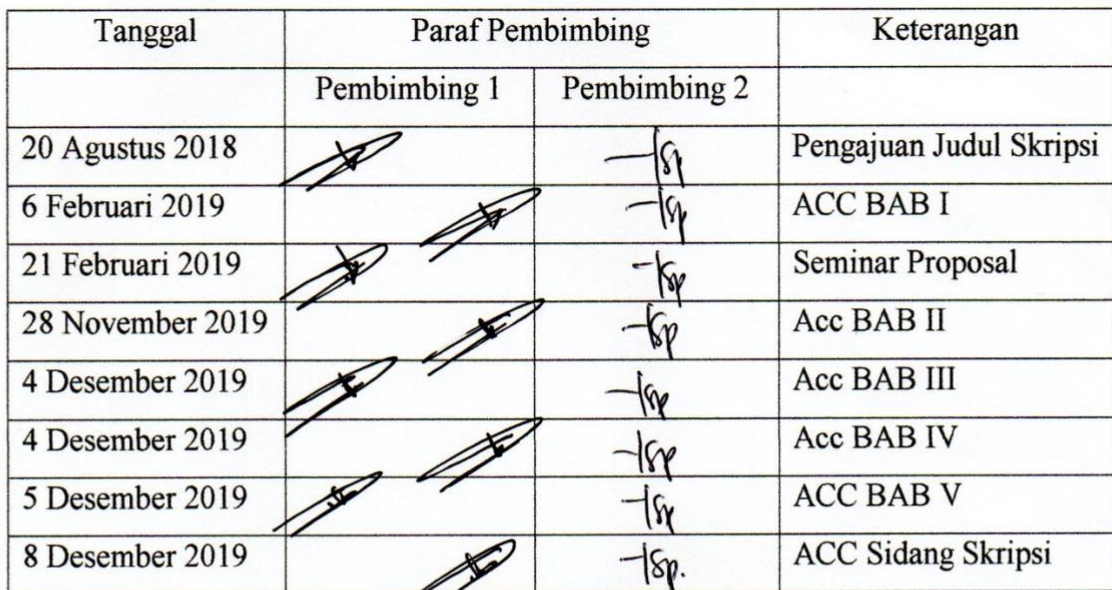 Tanggal Paraf Pembimbing Keterangan
Pembimbing 1 Pembimbing 2
20 Agustus 2018 Pengajuan Judul Skripsi
6 Februari 2019 ACC BAB I
21 Februari 2019 Seminar Proposal
28 November 2019 Acc BAB II
4 Desember 2019 Acc BAB III
4 Desember 2019 Acc BAB IV
5 Desember 2019 ACC BAB V
8 Desember 2019 ACC Sidang Skripsi